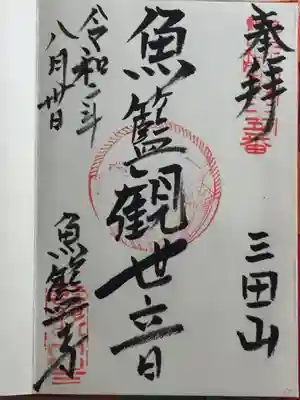 奉拝
三田山
魚籃観世音
令和二年
八月廿日
魚籃寺